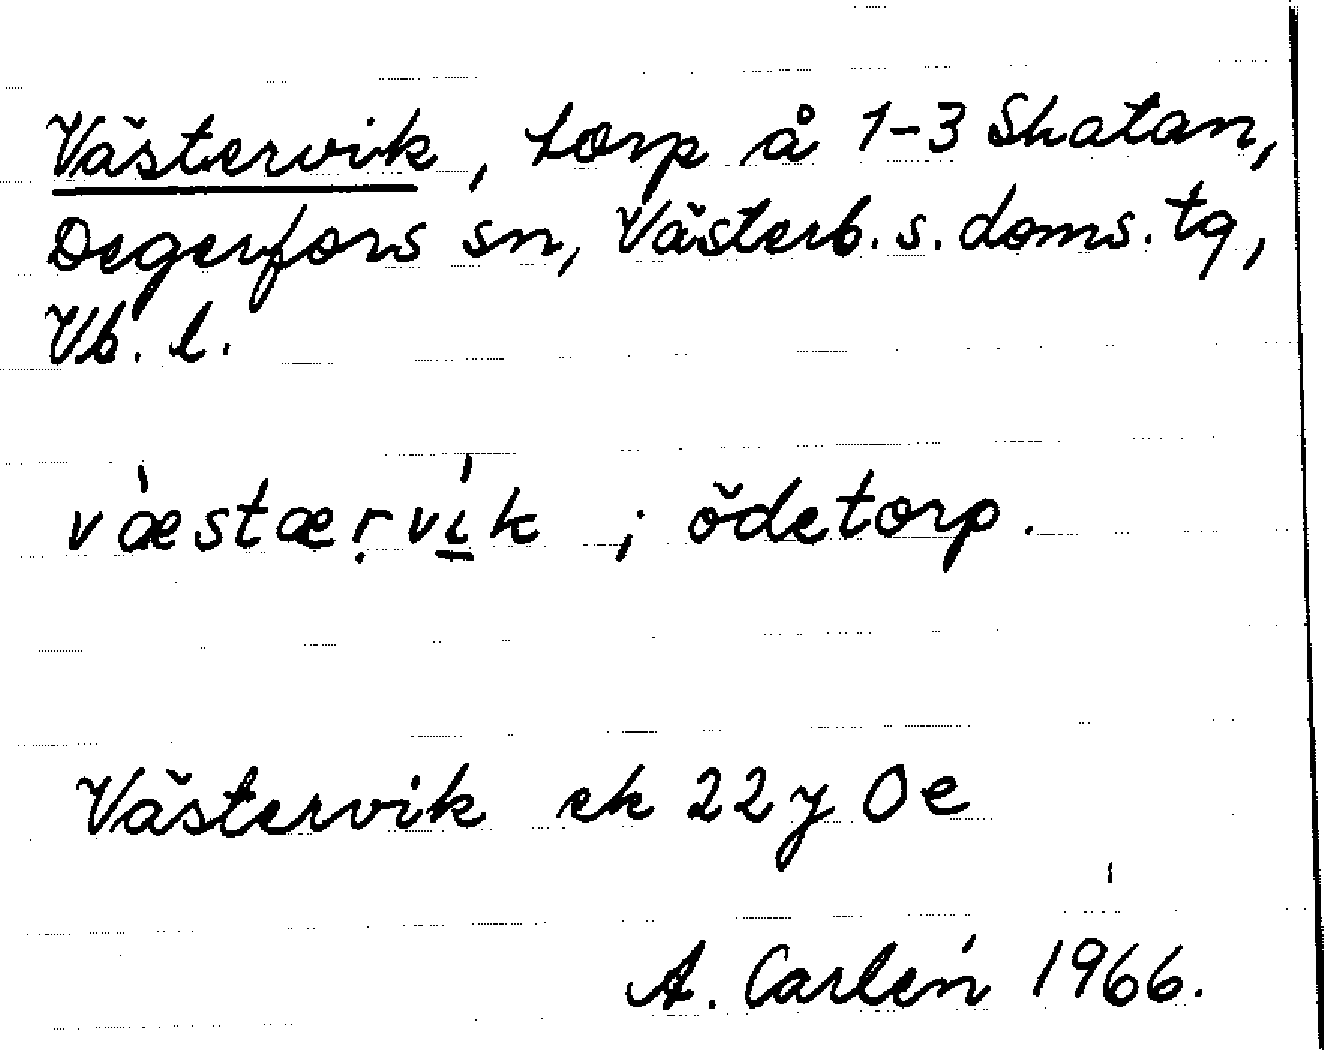 Västervik, torp å 1-3 Skatan,
Degerfors sn, Västerb. s. doms. tg,
Vb. l.
væ̀stæṛví̱k ; ödetorp.
Västervik ek 22y 0e
A. Carlén 1966.